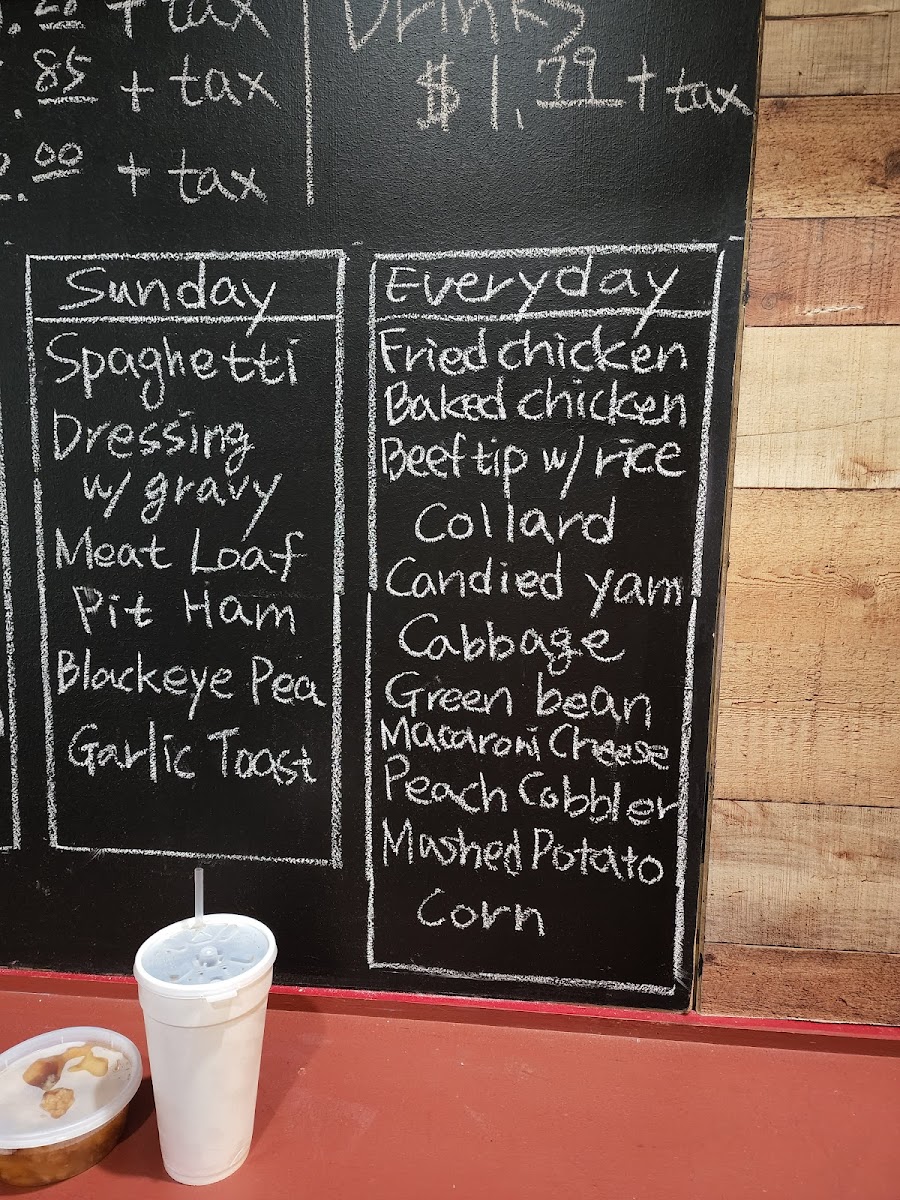 + tax
.85 + tax
.00 + tax
Drinks
$1.79 + tax
Sunday
Spaghetti
Dressing
w/ gravy
Meat Loaf
Pit Ham
Blackeye Pea
Garlic Toast
Everyday
Fried chicken
Baked chicken
Beef tip w/ rice
Collard
Candied yam
Cabbage
Green bean
Macaroni Cheese
Peach Cobbler
Mashed Potato
Corn